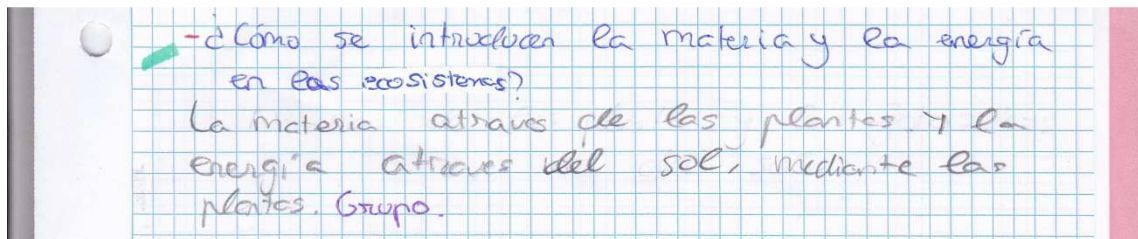 -¿Cómo se introducen la materia y la energía
en las ecosistemas?
La materia atraves de las plantas y la
energía atraves del sol, mediante las
plantas. Grupo.